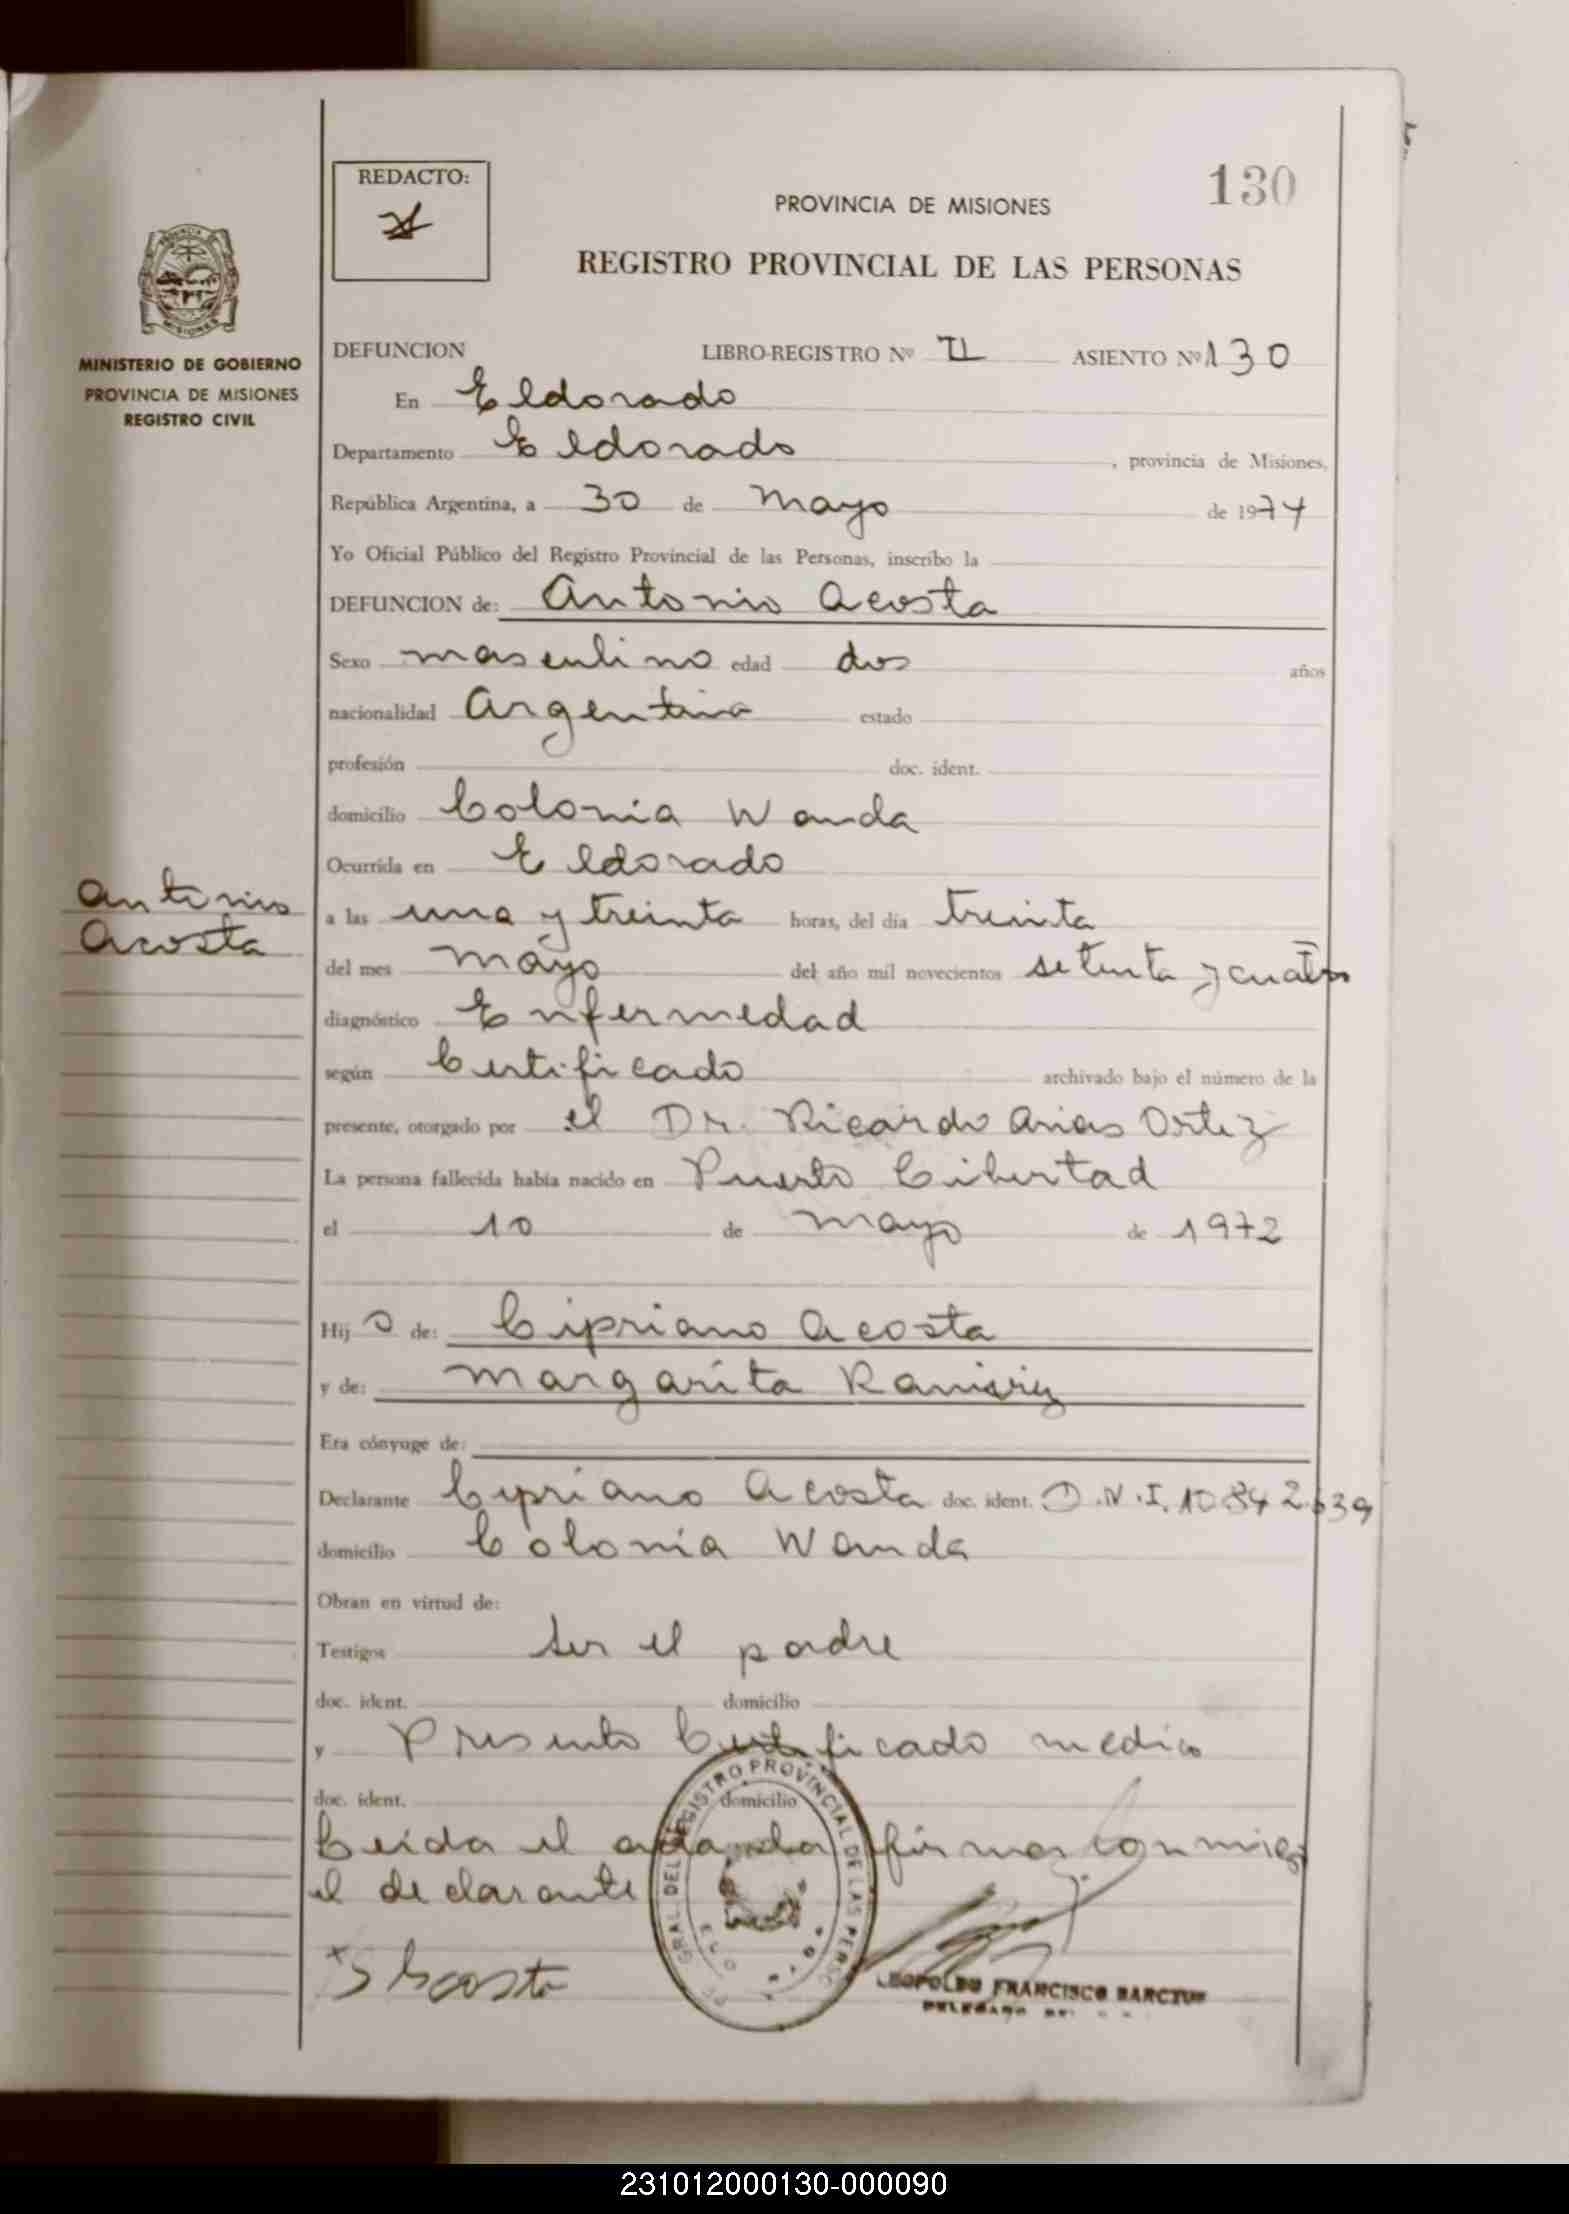 REDACTO:
130
PROVINCIA DE MISIONES
REGISTRO PROVINCIAL DE LAS PERSONAS
PROVINCIA DE MISIONES
MINISTERIO DE GOBIERNO
PROVINCIA DE MISIONES
REGISTRO CIVIL
DEFUNCION LIBRO-REGISTRO Nº II ASIENTO Nº 130
En Eldorado
Departamento Eldorado, provincia de Misiones,
República Argentina, a 30 de Mayo de 1974
Yo Oficial Público del Registro Provincial de las Personas, inscribo la
DEFUNCION de: Antonio Acosta
Sexo masculino edad dos años
nacionalidad Argentina estado
profesión doc. ident.
domicilio Colonia Wanda
Ocurrida en Eldorado
Antonio
Acosta
a las una y treinta horas, del día treinta
del mes mayo del año mil novecientos setenta y cuatro
diagnóstico Enfermedad
según Certificado archivado bajo el número de la
presente, otorgado por el Dr. Ricardo Arias Ortiz
La persona fallecida había nacido en Puerto Libertad
el 10 de mayo de 1972
Hijo de: Cipriano Acosta
y de: Margarita Ramirez
Era cónyuge de:
Declarante Cipriano Acosta doc. ident. D.N.I. 10842639
domicilio Colonia Wanda
Obran en virtud de:
Testigos ser el padre
doc. ident. domicilio
y Presento Certificado medico
doc. ident. domicilio
Leida el acta la firma conmigo
el declarante
GRAL DEL REGISTRO PROVINCIAL DE LAS PERSO
Acosta
LEOPOLDO FRANCISCO
DELEGADO
231012000130-000090